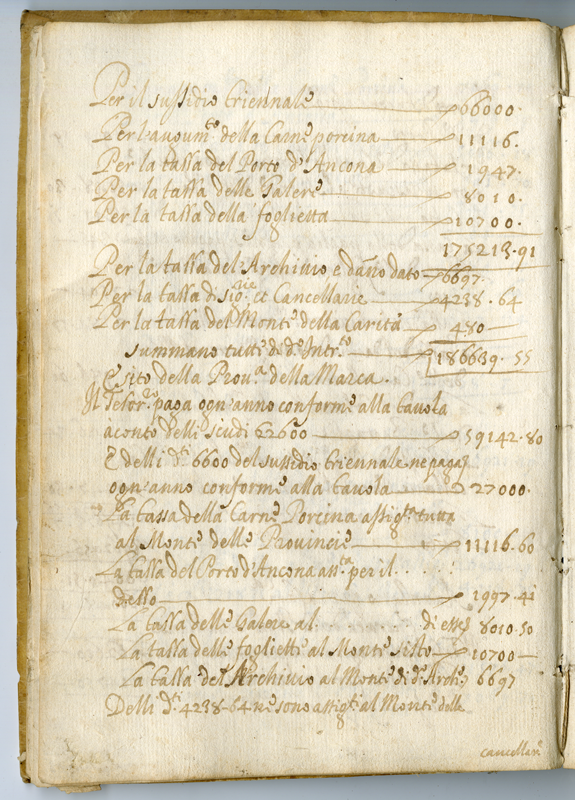 Per il sussidio triennale 66000.
Per l'augum.to della Carne porcina 11116.
Per la tassa del Porto d'Ancona 1947.
Per la tassa delle Galere 8010.
Per la tassa della foglietta 10700.
175213.91
Per la tassa del Archivio e dãno dato 6697.
Per la tassa di sig.rie et Cancellarie 4238.64
Per la tassa del Monte della Carità 480
summano tutte di d.e Intr.te 186639.55
Esito della Prou.a della Marca.
Il Tesor.ro paga ogn'anno conforme alla tauola
aconto delli scudi 62600 59142.80
E delli d.ti 6600 del sussidio triennale ne paga
ogn'anno conforme alla tauola 27000.
La tassa della Carne Porcina assig.ta tutta
al Monte delle Prouincie 11116.60
La tassa del Porto d'Ancona ass.ta per il
desso 1997.41
La tassa delle Galere al di esse 8010.50
La tassa delle fogliette al Monte sisto 10700
La tassa del Archivio al Monte di d.o Arch.o 6697
Delli d.ti 4238-64 ne sono assig.ti al Monte delle
cancellari